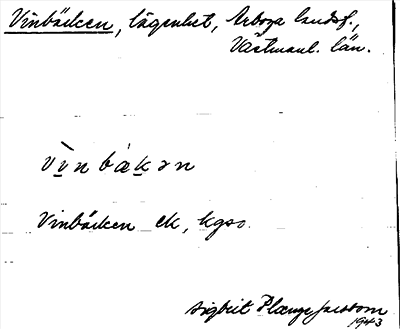 Vinbäcken, lägenhet, Arboga landsf.,
Västmanl. län.
vìnbäkən
Vinbäcken ek, kgso
Sigbrit Plænge Jacobson
1943